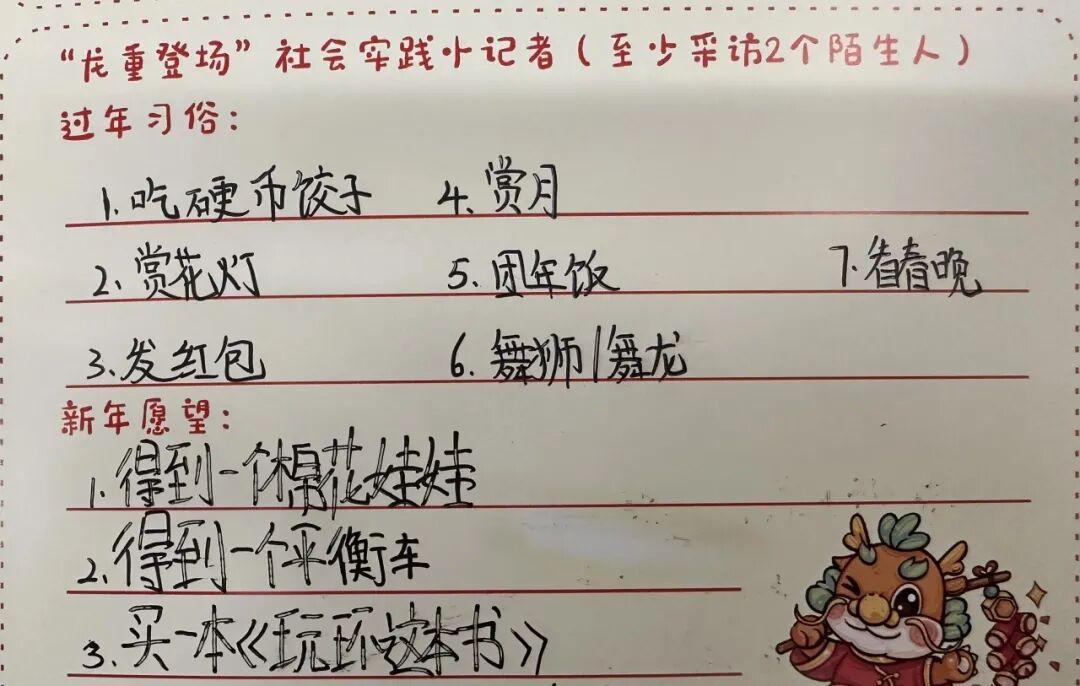 “龙重登场”社会实践小记者（至少采访2个陌生人）
过年习俗：
1.吃硬币饺子 4.赏月
2.赏花灯 5.团年饭 7.看春晚
3.发红包 6.舞狮/舞龙
新年愿望：
1.得到一个棉花娃娃
2.得到一个平衡车
3.买一本《玩环这本书》